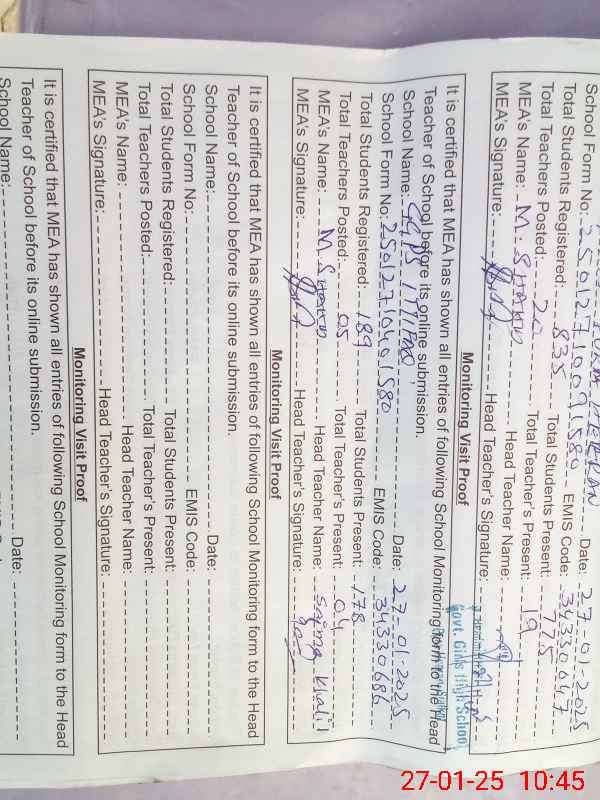 School Form No: 25012710091580 EMIS Code: 34330647
Date: 27-01-2025
Total Students Registered: 835 Total Students Present: 775
Total Teachers Posted: 20 Total Teacher's Present: 19
MEA's Name: M. SHAKIR Head Teacher Name:
MEA's Signature: Head Teacher's Signature:
Govt. Girls High School
Monitoring Visit Proof
It is certified that MEA has shown all entries of following School Monitoring form to the Head
Teacher of School before its online submission.
School Name: GGPS Date: 27-01-2025
School Form No: 25012710401580 EMIS Code: 34330686
Total Students Registered: 189 Total Students Present: 178
Total Teachers Posted: 05 Total Teacher's Present: 04
MEA's Name: M. SHAKIR Head Teacher Name: Saima Khalil
MEA's Signature: Head Teacher's Signature:
Monitoring Visit Proof
It is certified that MEA has shown all entries of following School Monitoring form to the Head
Teacher of School before its online submission.
School Name: Date:
School Form No.: EMIS Code:
Total Students Registered: Total Students Present:
Total Teachers Posted: Total Teacher's Present:
MEA's Name: Head Teacher Name:
MEA's Signature: Head Teacher's Signature:
Monitoring Visit Proof
It is certified that MEA has shown all entries of following School Monitoring form to the Head
Teacher of School before its online submission.
School Name: Date:
27-01-25 10:45